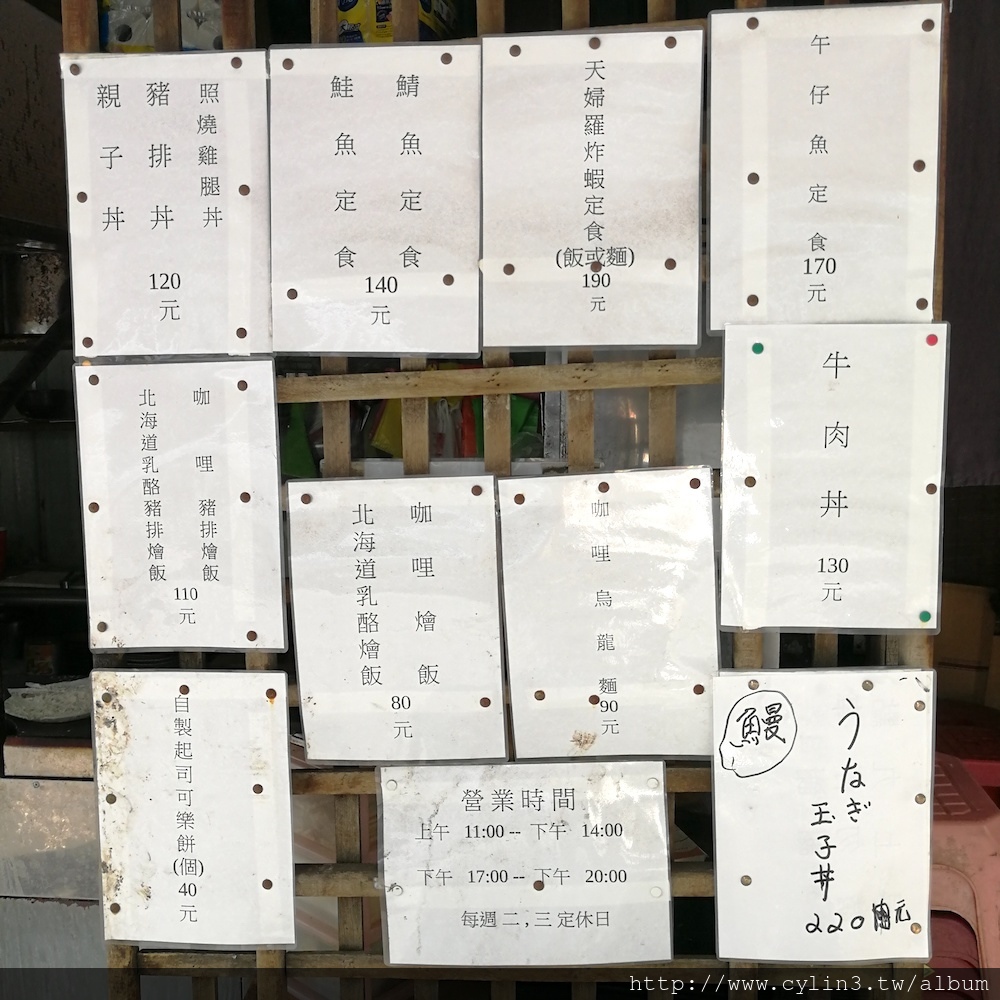 照燒雞腿丼
豬排丼
親子丼
120
元
鯖魚定食
鮭魚定食
140
元
天婦羅炸蝦定食
(飯或麵)
190
元
午仔魚定食
170
元
咖哩豬排燴飯
北海道乳酪豬排燴飯
110
元
咖哩燴飯
北海道乳酪燴飯
80
元
咖哩烏龍麵
90
元
牛肉丼
130
元
自製起司可樂餅
(個)
40
元
營業時間
上午 11:00 -- 下午 14:00
下午 17:00 -- 下午 20:00
每週二,三定休日
鰻
うなぎ
玉子丼
220元
http://www.cylin3.tw/album